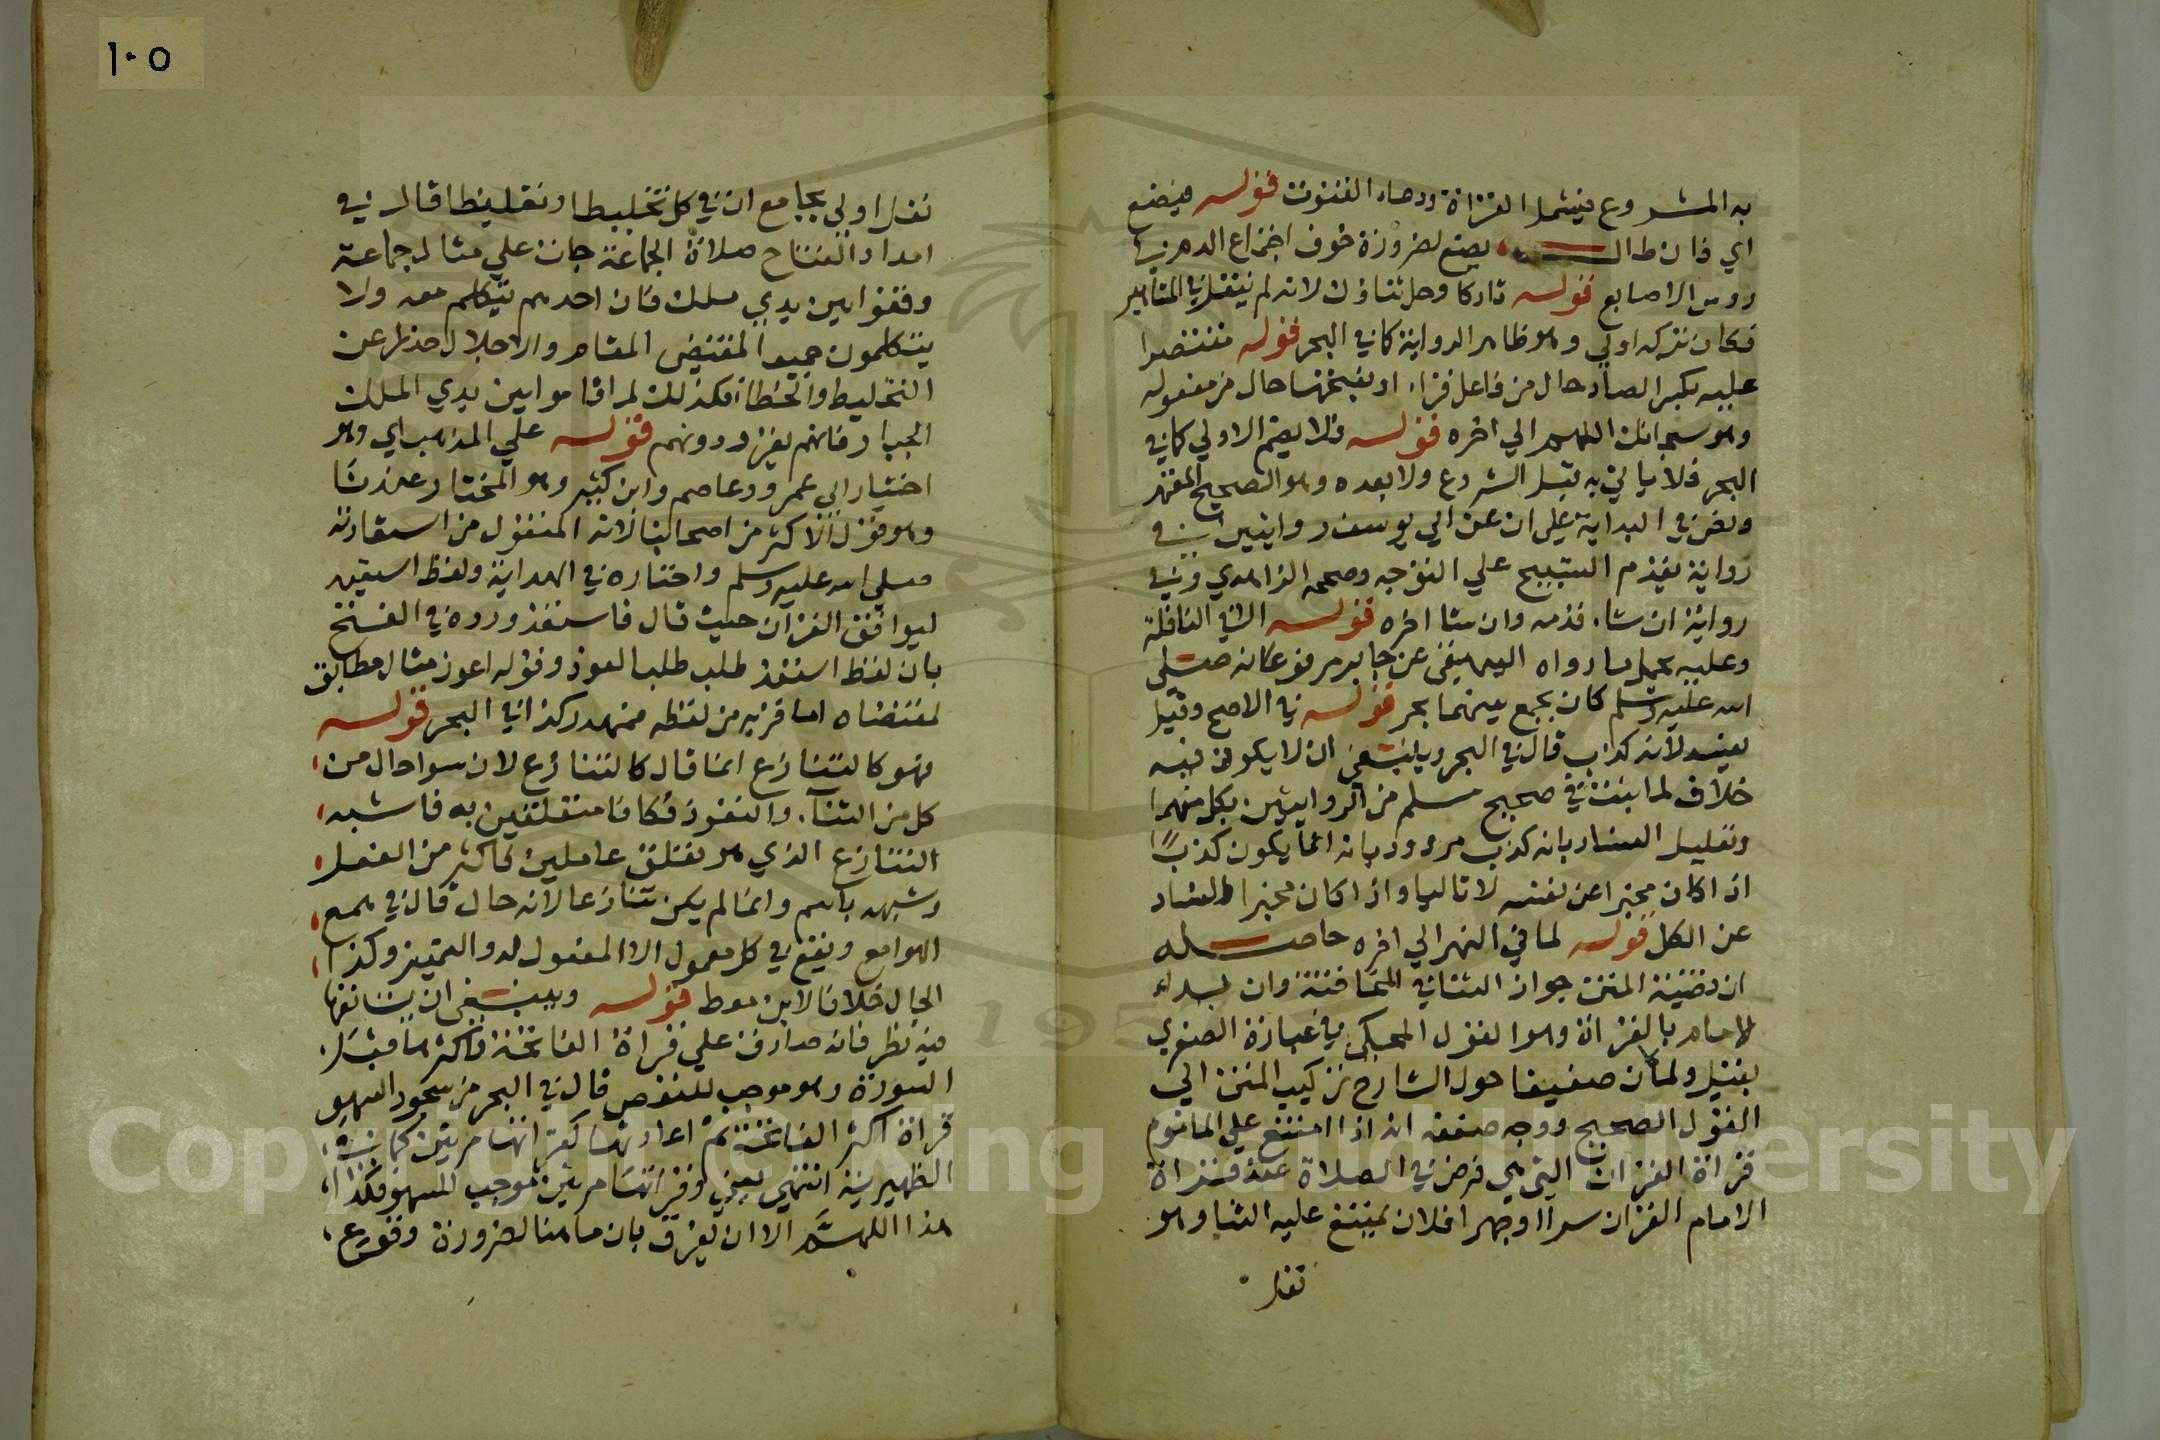 به المشروع فيشمل القراة ودعاء القنوت قوله فيضع
اي فان طال يضع لضرورة خوف اجتماع الدم في
روس الاصابع قوله تاركا وجل ثناؤك لانه لم ينقل في المشاهير
فكان تركه اولي وهو ظاهر الرواية كما في البحر قوله مقتصرا
عليه بكسر الصاد حال من فاعل قراء او بفتحها حال من مفعوله
وهو سبحانك اللهم الي اخره قوله فلا يضم الاولي كما في
البحر فلا ياتي به قبل الشروع ولا بعده وهو الصحيح المعتمد
ونص في البداية علي ان عن ابي يوسف روايتين في
رواية يقدم التسبيح علي التوجه وصححه الزاهدي وفي
رواية ان شاء قدمه وان شا اخره قوله الا في النافلة
وعليه يحمل ما رواه البيهقي عن جابر مرفوعا انه صلي
الله عليه وسلم كان يجمع بينهما بحر قوله في الاصح وقيل
تفسد لانه كذب قال في البحر وينبغي ان لا يكون فيه
خلاف لما ثبت في صحيح مسلم من الروايتين بكل منهما
وتعليل الفساد بانه كذب مردود بانه انما يكون كذبا
اذا كان مخبرا عن نفسه لا تاليا واذا كان مخبرا فالفساد
عن الكل قوله لما في النهر الي اخره حاصله
ان قضية المتن جواز الثنا في المخافتة وان بداء
الامام بالقراة وهو القول المحكي في عبارة الصغري
بقيل ولما كان ضعيفا حول الشارح تركيب المتن الي
القول الصحيح ووجه ضعفه انه اذا امتنع علي الماموم
قراة القران التي هي فرض في الصلاة عند قراة
الامام القران سرا او جهرا فلان يمتنع عليه الثنا وهو
نفل
نفل اولي بجامع ان في كل تخليطا وتغليطا قال في
امداد الفتاح صلاة الجماعة جات علي مثال جماعة
وقفوا بين يدي ملك فان احدهم يتكلم معه ولا
يتكلمون جميعا لمقتضي المقام والاجلال حذرا عن
التخليط والخطا فكذلك لما قاموا بين يدي الملك
الجبار فانهم يفرد دونهم قوله علي المذهب اي وهو
اختيار ابي عمرو وعاصم وابن كثير وهو المختار عندنا
وهو قول الاكثر من اصحابنا لانه المنقول من استعاذته
صلي الله عليه وسلم واختاره في الهداية ولفظ استعيذ
ليوافق القران حيث قال فاستعذ ورده في الفتح
بان لفظ استعذ طلب طلبا لعوذ وقوله اعوذ مثال مطابق
لمقتضاه اما قربه من لفظه فمهدر كذا في البحر قوله
فهو كالتنازع انما قال كالتنازع لان سرا حال من
كل من الثنا والتعوذ فكانا متعلقين به فاشبه
التنازع الذي هو تعلق عاملين فاكثر من الفعل
وشبهه باسم وانما لم يكن تنازعا لانه حال قال في همع
الهوامع ويقع في كل معمول الا المفعول له والتمييز وكذا
الحال خلافا لابن معط قوله وينبغي ان يستانفها
فيه نظر فانه صادق علي قراة الفاتحة فاكثرها قبل
السورة وهو موجب للنقص قال في البحر من سجود السهو
قراة اكثر الفاتحة ثم اعادتها كقرأتها مرتين كما في
الظهيرية انتهي يعني وقرأتها مرتين موجب للسهو فكذا
هذا اللهم الا ان يفرق بان ما هنا لضرورة وقوع
١٠٥
Copyright © King Saud University
1957